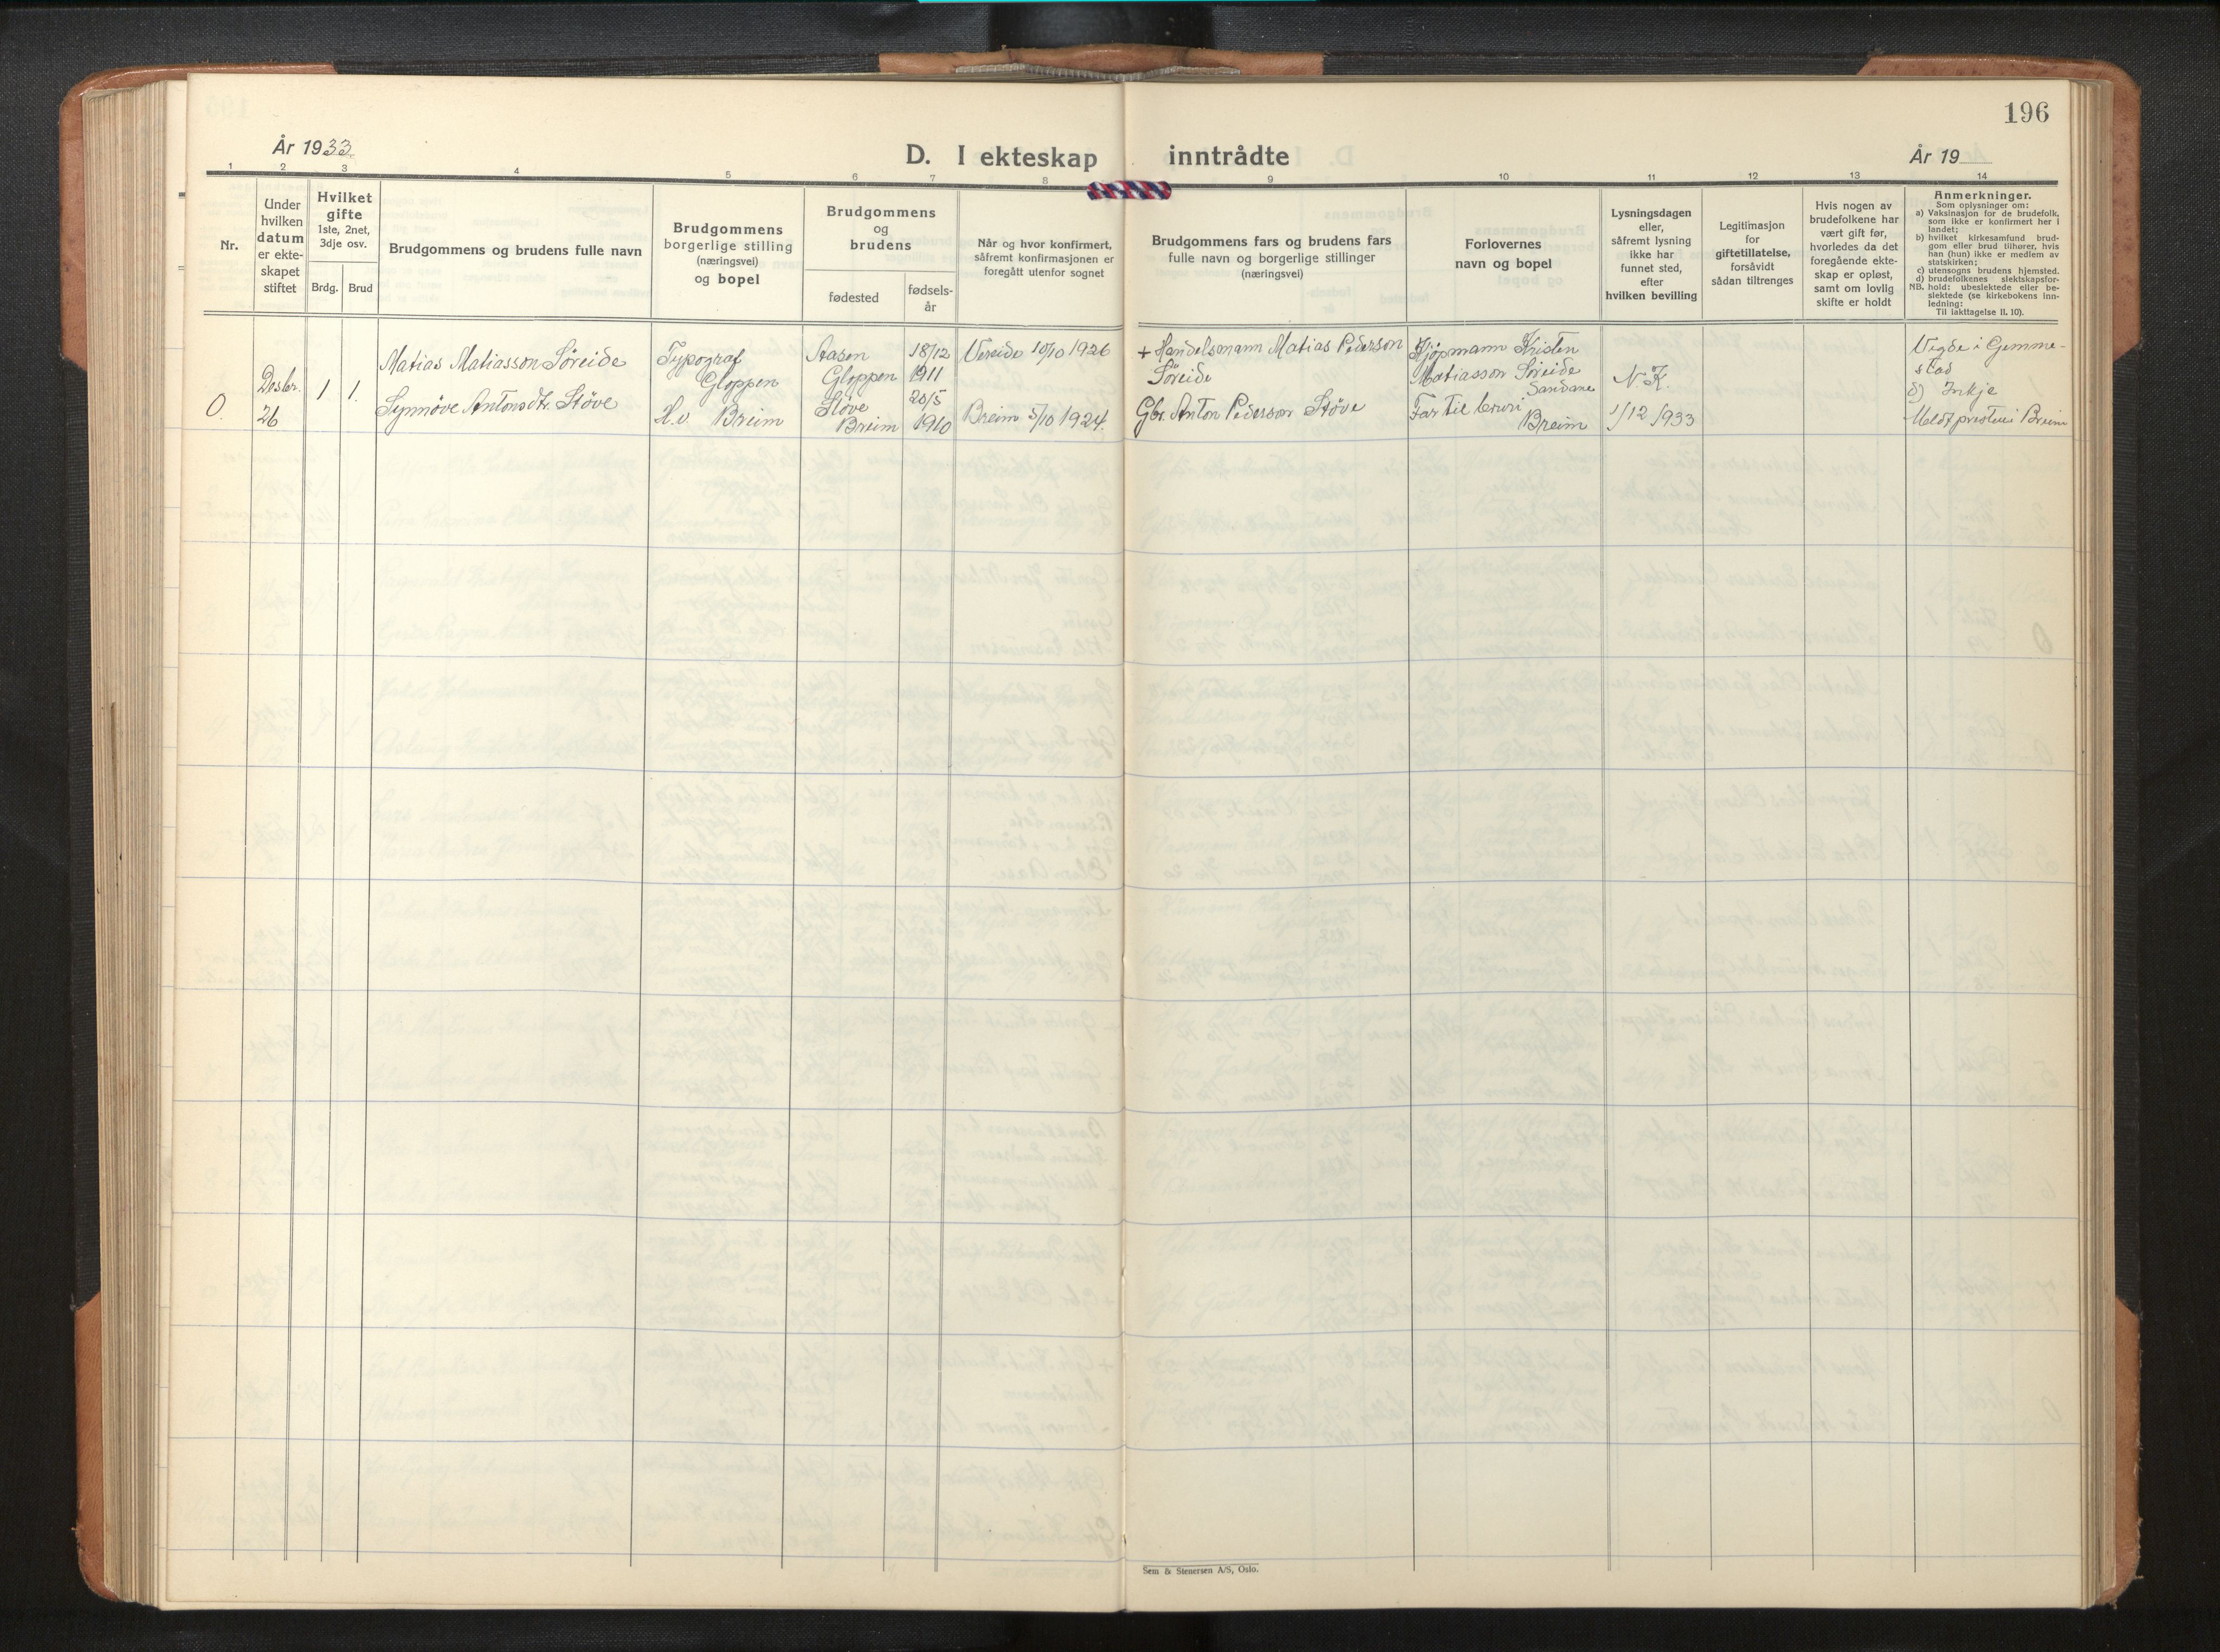 196
År 1933
D. I ekteskap inntrådte
År 19
1 2 3 4 5 6 7 8 9 10 11 12 13 14
Nr.
Under
hvilken
datum
er ekte-
skapet
stiftet
Hvilket
gifte
1ste, 2net,
3dje osv.
Brdg. Brud
Brudgommens og brudens fulle navn
Brudgommens
borgerlige stilling
(næringsvei)
og bopel
Brudgommens
og
brudens
fødested
fødsels-
år
Når og hvor konfirmert,
såfremt konfirmasjonen er
foregått utenfor sognet
Brudgommens fars og brudens fars
fulle navn og borgerlige stillinger
(næringsvei)
Forlovernes
navn og bopel
Lysningsdagen
eller,
såfremt lysning
ikke har
funnet sted,
efter
hvilken bevilling
Legitimasjon
for
giftetillatelse,
forsåvidt
sådan tiltrenges
Hvis nogen av
brudefolkene har
vært gift før,
hvorledes da det
foregående ekte-
skap er opløst,
samt om lovlig
skifte er holdt
Anmerkninger.
Som oplysninger om:
a) Vaksinasjon for de brudefolk,
som ikke er konfirmert her i
landet;
b) hvilket kirkesamfund brud-
gom eller brud tilhører, hvis
han (hun) ikke er medlem av
statskirken;
c) utensogns brudens hjemsted.
d) brudefolkenes slektskapsfor-
NB. hold: ubeslektede eller be-
slektede (se kirkebokens inn-
ledning:
Til iakttagelse II. 10).
0.
Desbr.
26
1 1.
Matias Matiasson Söreide
Synnöve Antonsdtr. Stöve
Typograf
Gloppen
H.v. Breim
Aasen
Gloppen
Stöve
Breim
18/12
1911
20/5
1910
Vereide 10/10 1926
Breim 5/10 1924.
+ Handelsmann Matias Pederson
Söreide
Gbr. Anton Pederson Stöve
Kjöpmann Kristen
Matiasson Söreide
Sandane
Far til bruri
Breim
N.K.
1/12 1933
Vigde i Gemme-
stad
d) Inkje
Meldt presten i Breim
Sem & Stenersen A/S, Oslo.